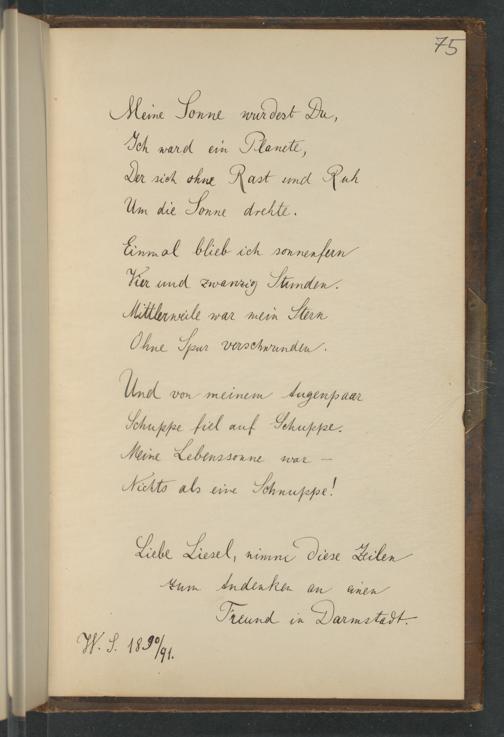 75
Meine Sonne wurdest Du,
Ich ward ein Planete,
Der sich ohne Rast und Ruh
Um die Sonne drehte.
Einmal blieb ich sonnenfern
Vier und zwanzig Stunden.
Mittlerweile war mein Stern
Ohne Spur verschwunden.
Und von meinem Augenpaar
Schuppe fiel auf Schuppe.
Meine Lebenssonne war —
Nichts als eine Schnuppe!
Liebe Liesel, nimm diese Zeilen
zum Andenken an einen
Freund in Darmstadt.
W. S. 1890/91.